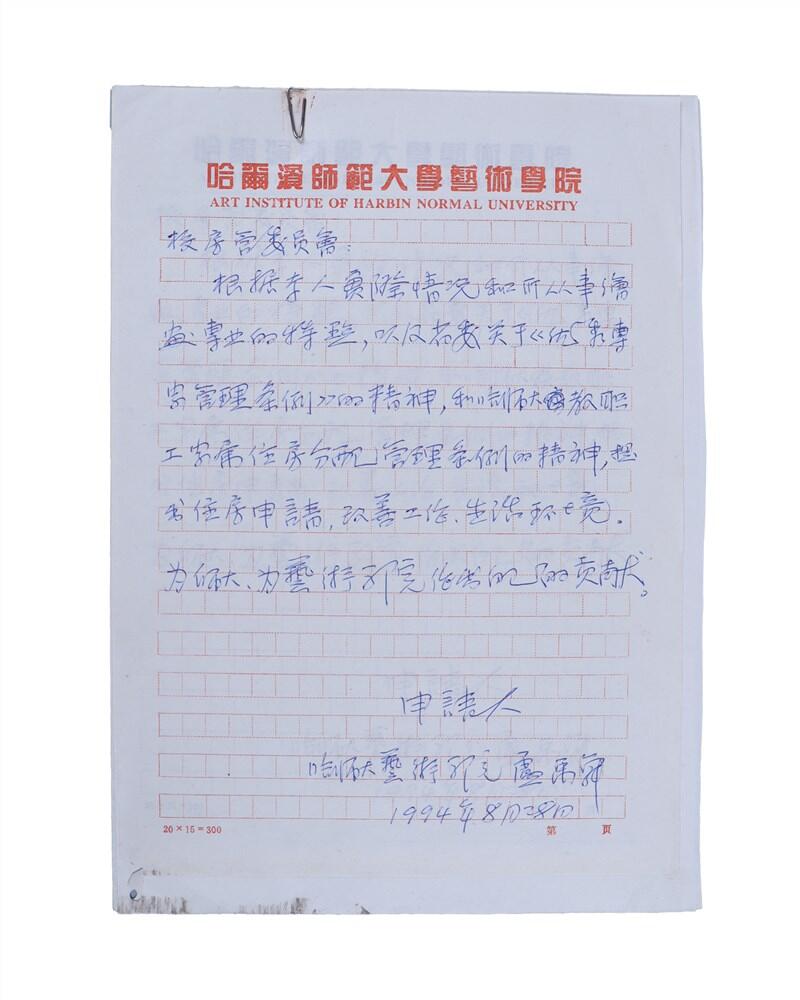 哈爾濱師範大學藝術學院
ART INSTITUTE OF HARBIN NORMAL UNIVERSITY
校房管委员會：
根据本人實際情况和所从事繪
画專业的特點，以及省委关于《优秀專
家管理条例》的精神，和哈师大教职
工家属住房分配管理条例的精神，提
出住房申請，改善工作、生活环境。
为师大、为藝術学院作出自己的贡献。
申請人
哈师大藝術学院盧禹舜
1994年8月28日
20×15=300
第 页